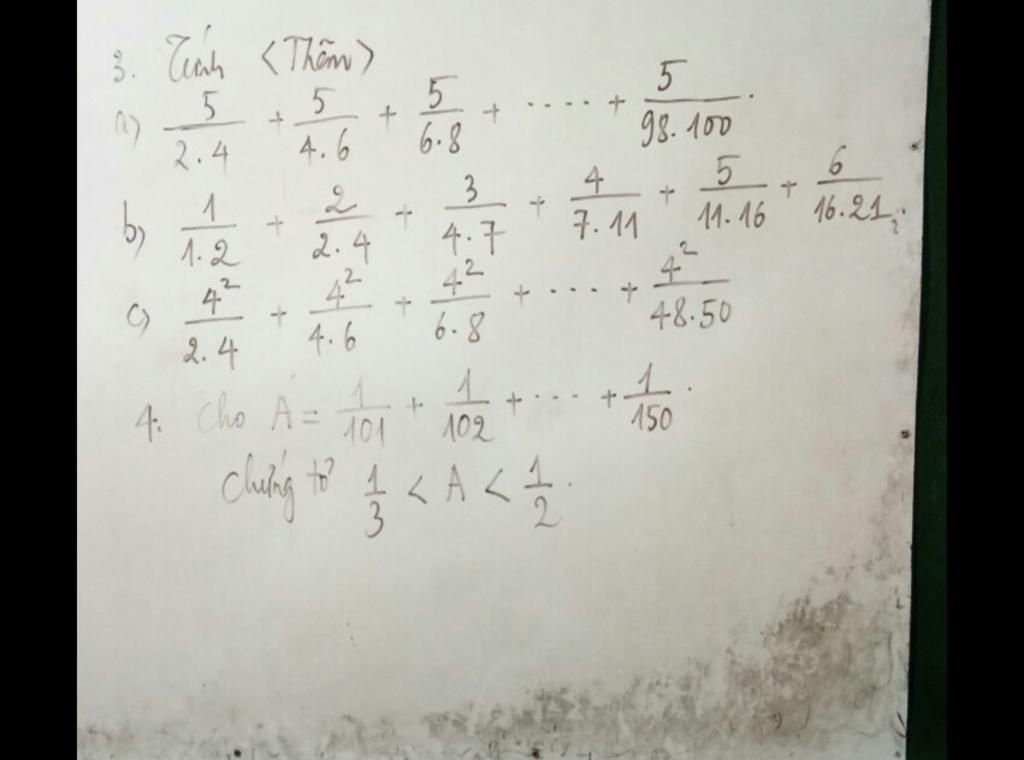 3. Tính <Thêm>
a) 5/2.4 + 5/4.6 + 5/6.8 + .... + 5/98.100.
b) 1/1.2 + 2/2.4 + 3/4.7 + 4/7.11 + 5/11.16 + 6/16.21.
c) 4²/2.4 + 4²/4.6 + 4²/6.8 + .... + 4²/48.50
4. Cho A = 1/101 + 1/102 + ... + 1/150.
Chứng tỏ 1/3 < A < 1/2.